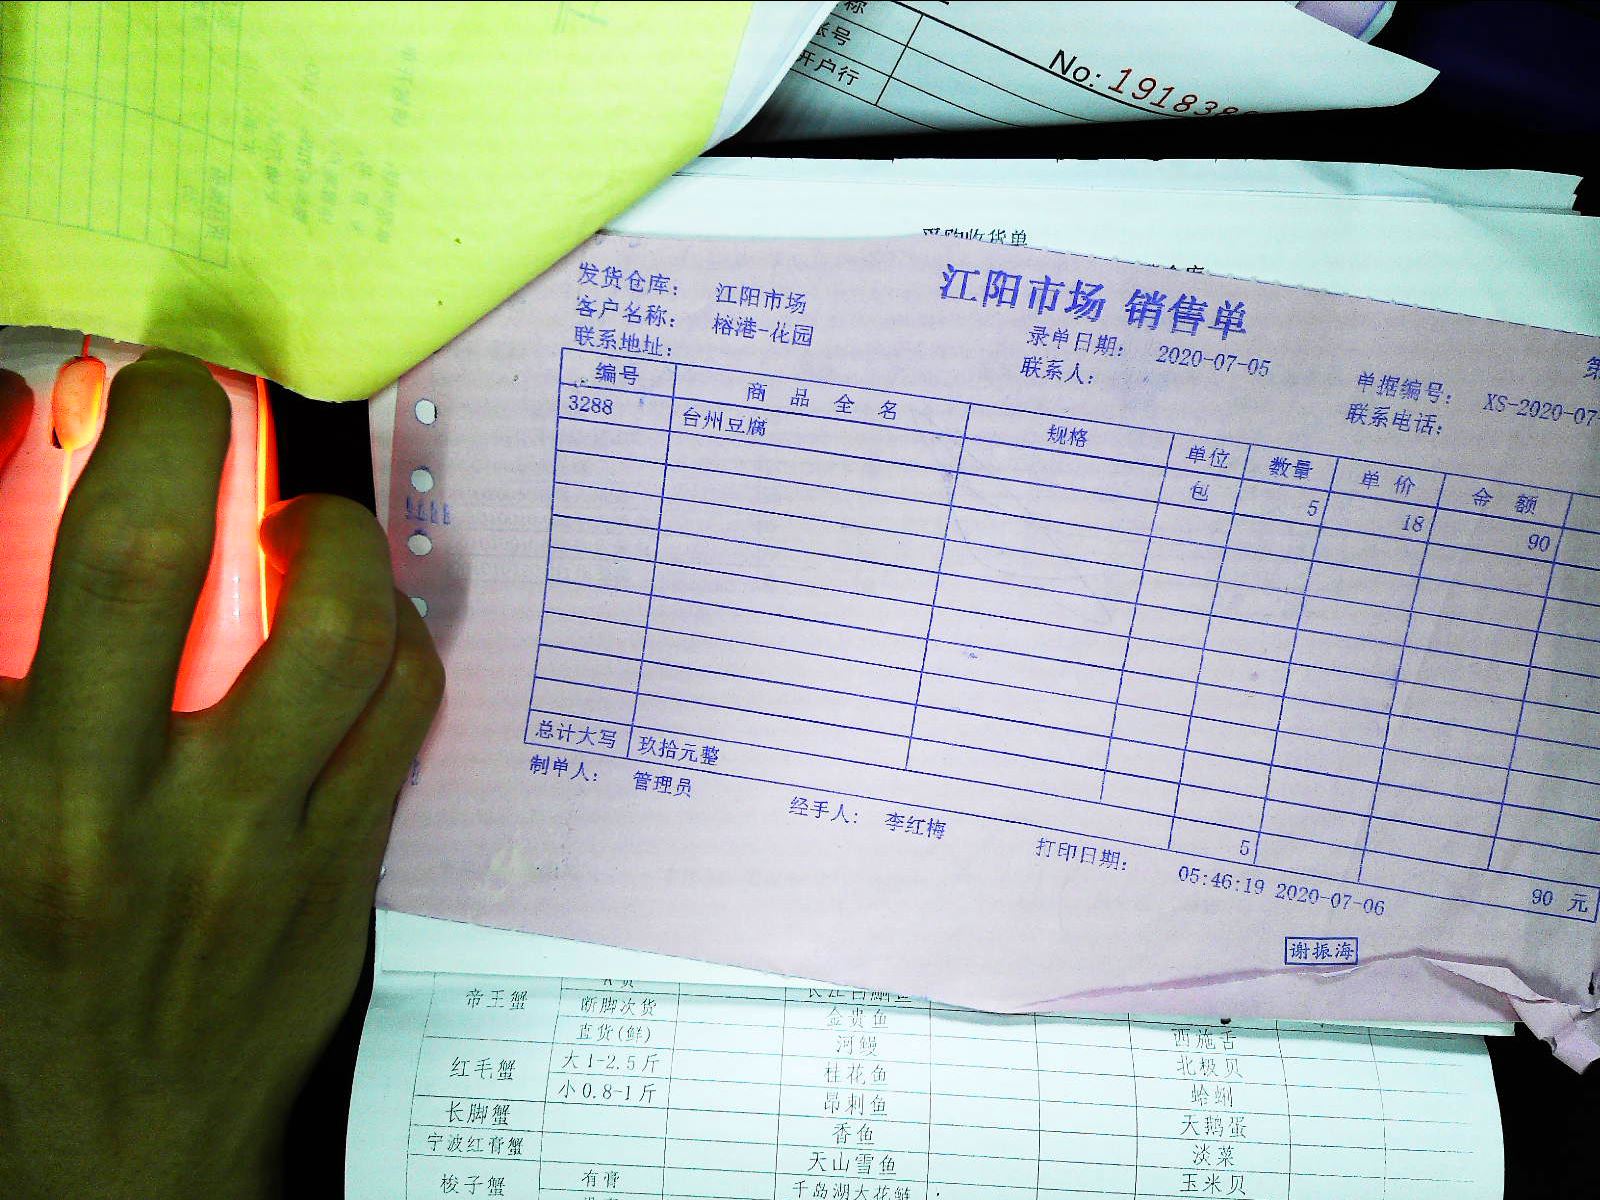 账号
开户行
No: 191838
采购收货单
江阳市场 销售单
发货仓库: 江阳市场
客户名称: 榕港-花园
联系地址:
录单日期: 2020-07-05
联系人:
单据编号: XS-2020-07-
联系电话:
第
编号 商品全名 规格 单位 数量 单价 金额
3288 台州豆腐 包 5 18 90
总计大写 玖拾元整 5 90 元
制单人: 管理员 经手人: 李红梅 打印日期: 05:46:19 2020-07-06
谢振海
帝王蟹 断脚次货 金贵鱼
直货(鲜) 河鳗 西施舌
红毛蟹 大1-2.5斤 桂花鱼 北极贝
小0.8-1斤 昂刺鱼 蛤蜊
长脚蟹 香鱼 天鹅蛋
宁波红膏蟹 天山雪鱼 淡菜
梭子蟹 有膏 千岛湖大花鲢 玉米贝